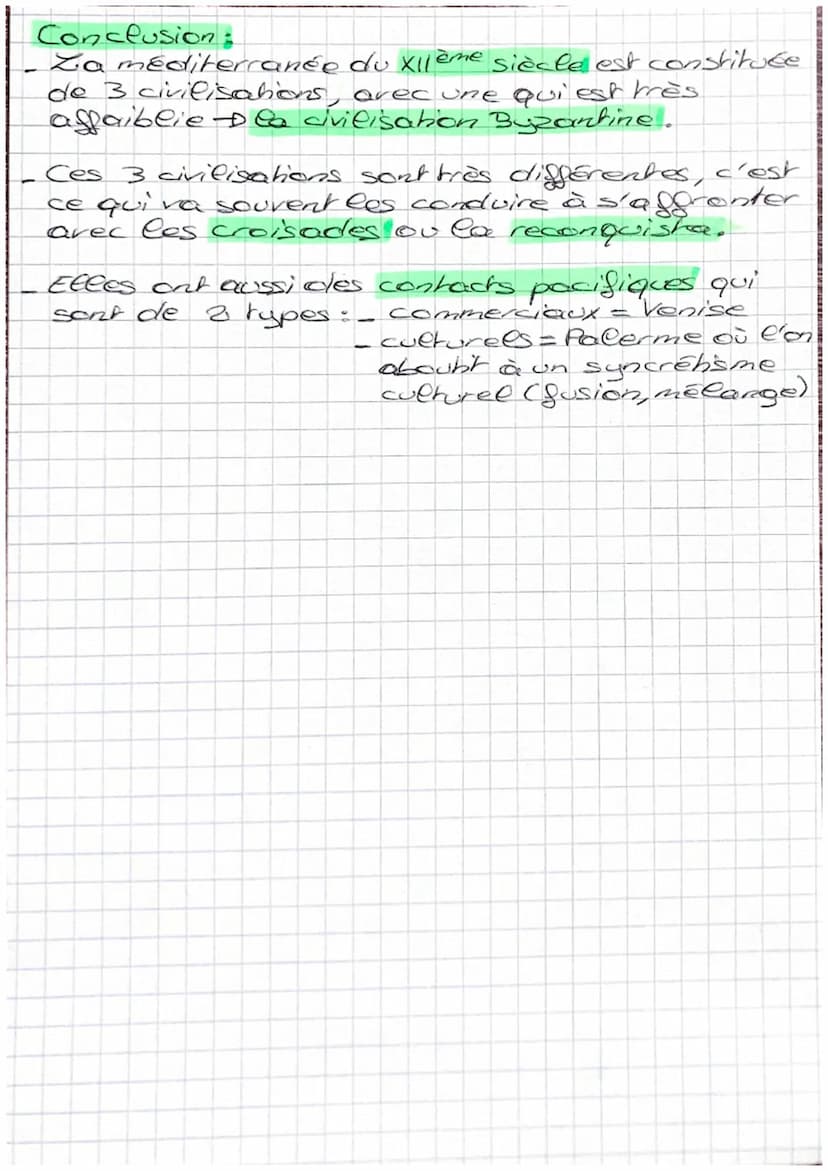 Conclusion :
- La méditerranée du XIIème siècle est constituée
de 3 civilisations, avec une qui est très
affaiblie → la civilisation Byzantine.
- Ces 3 civilisations sont très différentes, c'est
ce qui va souvent les conduire à s'affronter
avec les croisades ou la reconquista.
- Elles ont aussi des contacts pacifiques qui
sont de 2 types : - commerciaux = Venise
- culturels = Palerme où l'on
aboutit à un syncrétisme
culturel (fusion, mélange)